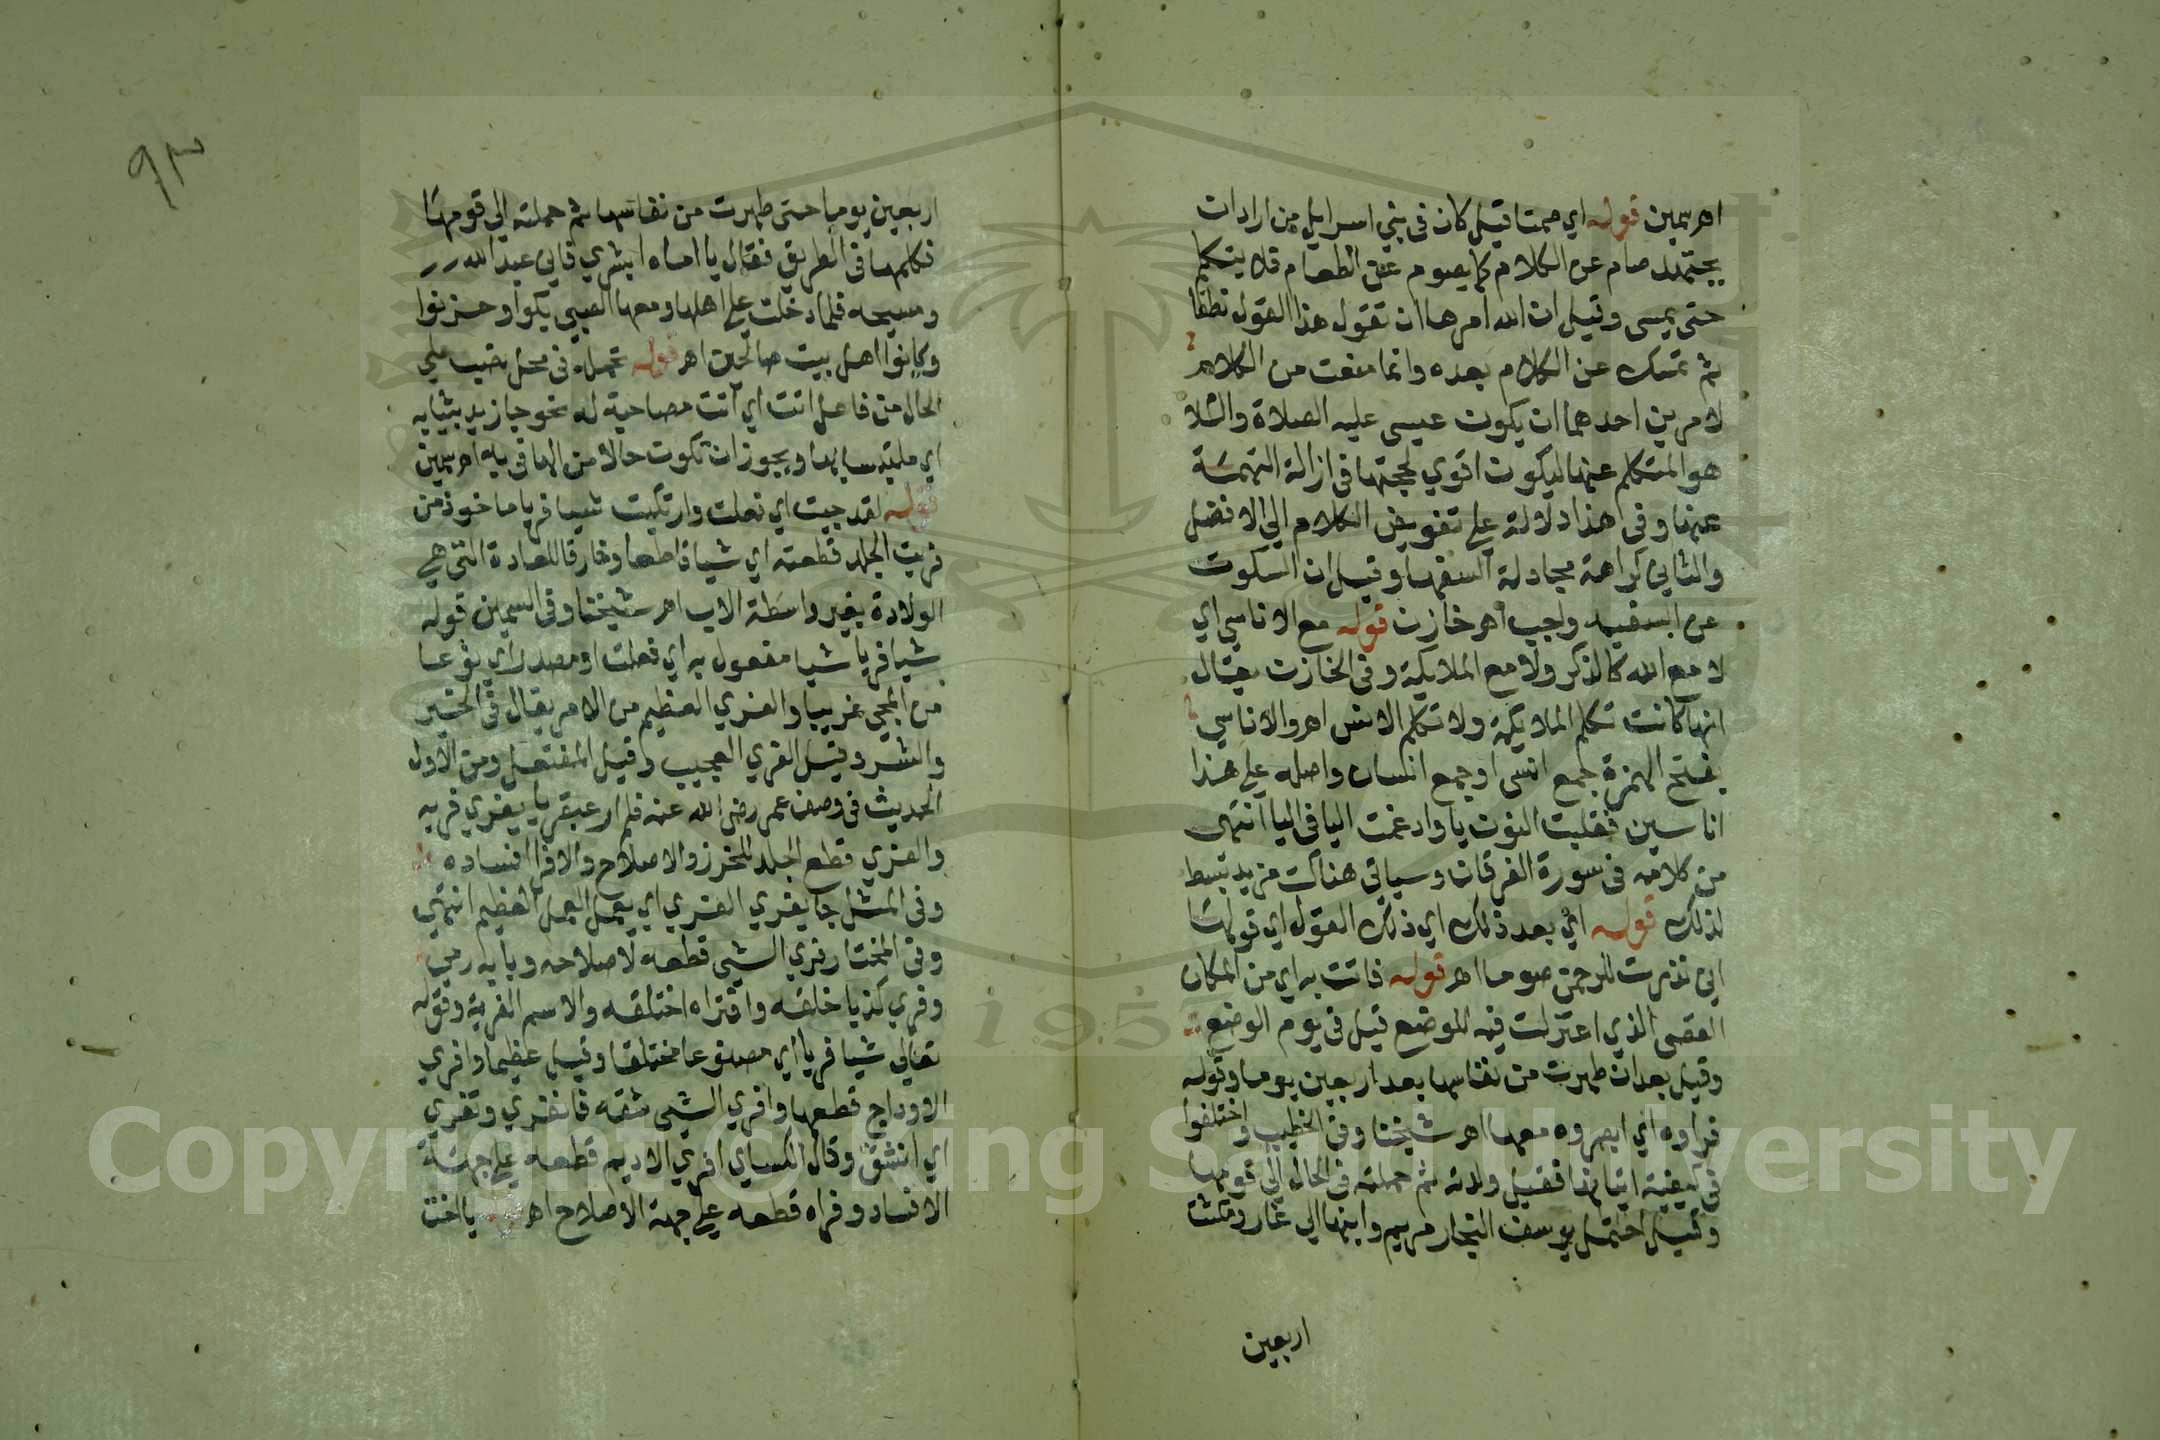 اه سمين قوله اي صمتا قيل كان في بني اسرايل من اراد ان
يجتهد صام عن الكلام كما يصوم عن الطعام فلا يتكلم
حتى يمسى وقيل ان الله امرها ان تقول هذا القول نطقا
ثم تمسك عن الكلام بعده وانما منعت من الكلام
لامرين احدهما ان يكون عيسى عليه الصلاة والسلا
هو المتكلم عنها ليكون اقوي لحجتها في ازالة التهمة
عنها وفى هذا دلالة على تفويض الكلام الى الافضل
والثاني كراهة مجادلة السفها وقيل ان السكوت
عن السفيه واجب اه خازن قوله مع الاناسي اي
لا مع الله كالذكر ولا مع الملايكة وفى الخازن يقال
انها كانت تكلم الملايكة ولا تكلم الانس اه والاناسي
بفتح الهمزة جمع انسى او جمع انسان واصله على هذا
اناسين فقلبت النون يا وادغمت اليا فى اليا انتهى
من كلامه فى سورة الفرقان وسياتى هناك مزيد تبسط
لذلك قوله اي بعد ذلك اي ذلك القول اي قولها
اني نذرت للرحمن صوما اه قوله فاتت به اي من المكان
القصى الذي اعتزلت فيه للوضع قيل فى يوم الوضع
وقيل بعد ان طهرت من نفاسها بعد اربعين يوما وقوله
فراوه اي ابصروه معها اه شيخنا وفى الخطيب واختلفوا
فى كيفية اتيانها فقيل ولدته ثم حملته فى الحال الى قومها
وقيل احتمل يوسف النجار مريم وابنها الى غار ومكثت
اربعين
٩٣
اربعين يوما حتى طهرت من نفاسها ثم حملته الى قومها
فكلمها فى الطريق فقال يا اماه ابشري فاني عبد الله
ومسيحه فلما دخلت على اهلها ومعها الصبي بكوا وحزنوا
وكانوا اهل بيت صالحين اه قوله تحمله فى محل نصب على
الحال من فاعل اتت اي اتت مصاحبة له نحو جا زيد بثيابه
اي ملتبسا بها ويجوز ان تكون حالا من الها في به اه سمين
قوله لقد جيت اي فعلت وارتكبت شيا فريا ماخوذ من
فريت الجلد قطعته اي شيا قاطعا وخارقا للعادة التى هي
الولادة بغير واسطة الاب اه شيخنا وفى السمين قوله
شيا فريا شيا مفعول به اي فعلت او مصدر اي نوعا
من المجي غريبا والفري العظيم من الامر يقال فى الخير
والشر وقيل الفري العجيب وقيل المفتعل ومن الاول
الحديث فى وصف عمر رضى الله عنه فلم ار عبقريا يفري فريه
والفري قطع الجلد للخرز والاصلاح والافرا افساده
وفى المثل جا يفري الفري اي يعمل العمل العظيم انتهى
وفى المختار فري الشي قطعه لاصلاحه وبابه رمي
وفري كذبا خلقه وافتراه اختلقه والاسم الفرية وقوله
تعالى شيا فريا اي مصنوعا مختلقا وقيل عظيما وافري
الاوداج قطعها وافري الشى شقه فانفري وتفري
اي انشق وقال الكساي افري الاديم قطعه على جهة
الافساد وفراه قطعه على جهة الاصلاح اه قوله يا اخت
1957
Copyright © King Saud University